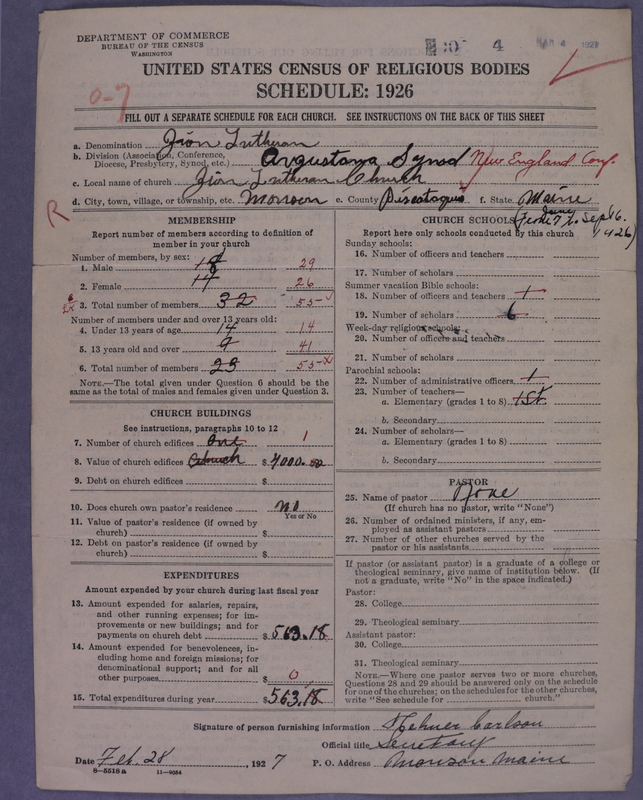 DEPARTMENT OF COMMERCE
BUREAU OF THE CENSUS
WASHINGTON
4 MAR 4 1927
UNITED STATES CENSUS OF RELIGIOUS BODIES
SCHEDULE: 1926
0-7
FILL OUT A SEPARATE SCHEDULE FOR EACH CHURCH. SEE INSTRUCTIONS ON THE BACK OF THIS SHEET
a. Denomination Zion Lutheran
b. Division (Association, Conference, Diocese, Presbytery, Synod, etc.) Augustana Synod New England Conf.
c. Local name of church Zion Lutheran Church
d. City, town, village, or township, etc. Monson e. County Piscataquis f. State Maine
R
MEMBERSHIP
Report number of members according to definition of member in your church
Number of members, by sex:
1. Male 18 29
2. Female 14 26
3. Total number of members 32 55
Number of members under and over 13 years old:
4. Under 13 years of age 14 14
5. 13 years old and over 9 41
6. Total number of members 23 55
NOTE.—The total given under Question 6 should be the same as the total of males and females given under Question 3.
CHURCH BUILDINGS
See instructions, paragraphs 10 to 12
7. Number of church edifices One 1
8. Value of church edifices Church $ 4000.00
9. Debt on church edifices $
10. Does church own pastor's residence No
Yes or No
11. Value of pastor's residence (if owned by church) $
12. Debt on pastor's residence (if owned by church) $
EXPENDITURES
Amount expended by your church during last fiscal year
13. Amount expended for salaries, repairs, and other running expenses; for improvements or new buildings; and for payments on church debt $ 563.18
14. Amount expended for benevolences, including home and foreign missions; for denominational support; and for all other purposes $ 0
15. Total expenditures during year $563.18
CHURCH SCHOOLS (June 7 to Sept 6. 1926)
Report here only schools conducted by this church
Sunday schools:
16. Number of officers and teachers
17. Number of scholars
Summer vacation Bible schools:
18. Number of officers and teachers 1
19. Number of scholars 6
Week-day religious schools:
20. Number of officers and teachers
21. Number of scholars
Parochial schools:
22. Number of administrative officers 1
23. Number of teachers—
a. Elementary (grades 1 to 8) 1st
b. Secondary
24. Number of scholars—
a. Elementary (grades 1 to 8)
b. Secondary
PASTOR
25. Name of pastor None
(If church has no pastor, write "None")
26. Number of ordained ministers, if any, employed as assistant pastors
27. Number of other churches served by the pastor or his assistants
If pastor (or assistant pastor) is a graduate of a college or theological seminary, give name of institution below. (If not a graduate, write "No" in the space indicated.)
Pastor:
28. College
29. Theological seminary
Assistant pastor:
30. College
31. Theological seminary
NOTE.—Where one pastor serves two or more churches, Questions 28 and 29 should be answered only on the schedule for one of the churches; on the schedules for the other churches, write "See schedule for church."
Signature of person furnishing information Carlson
Official title Secretary
Date Feb. 28, 1927 P. O. Address Monson Maine
8—5518a 11—9054